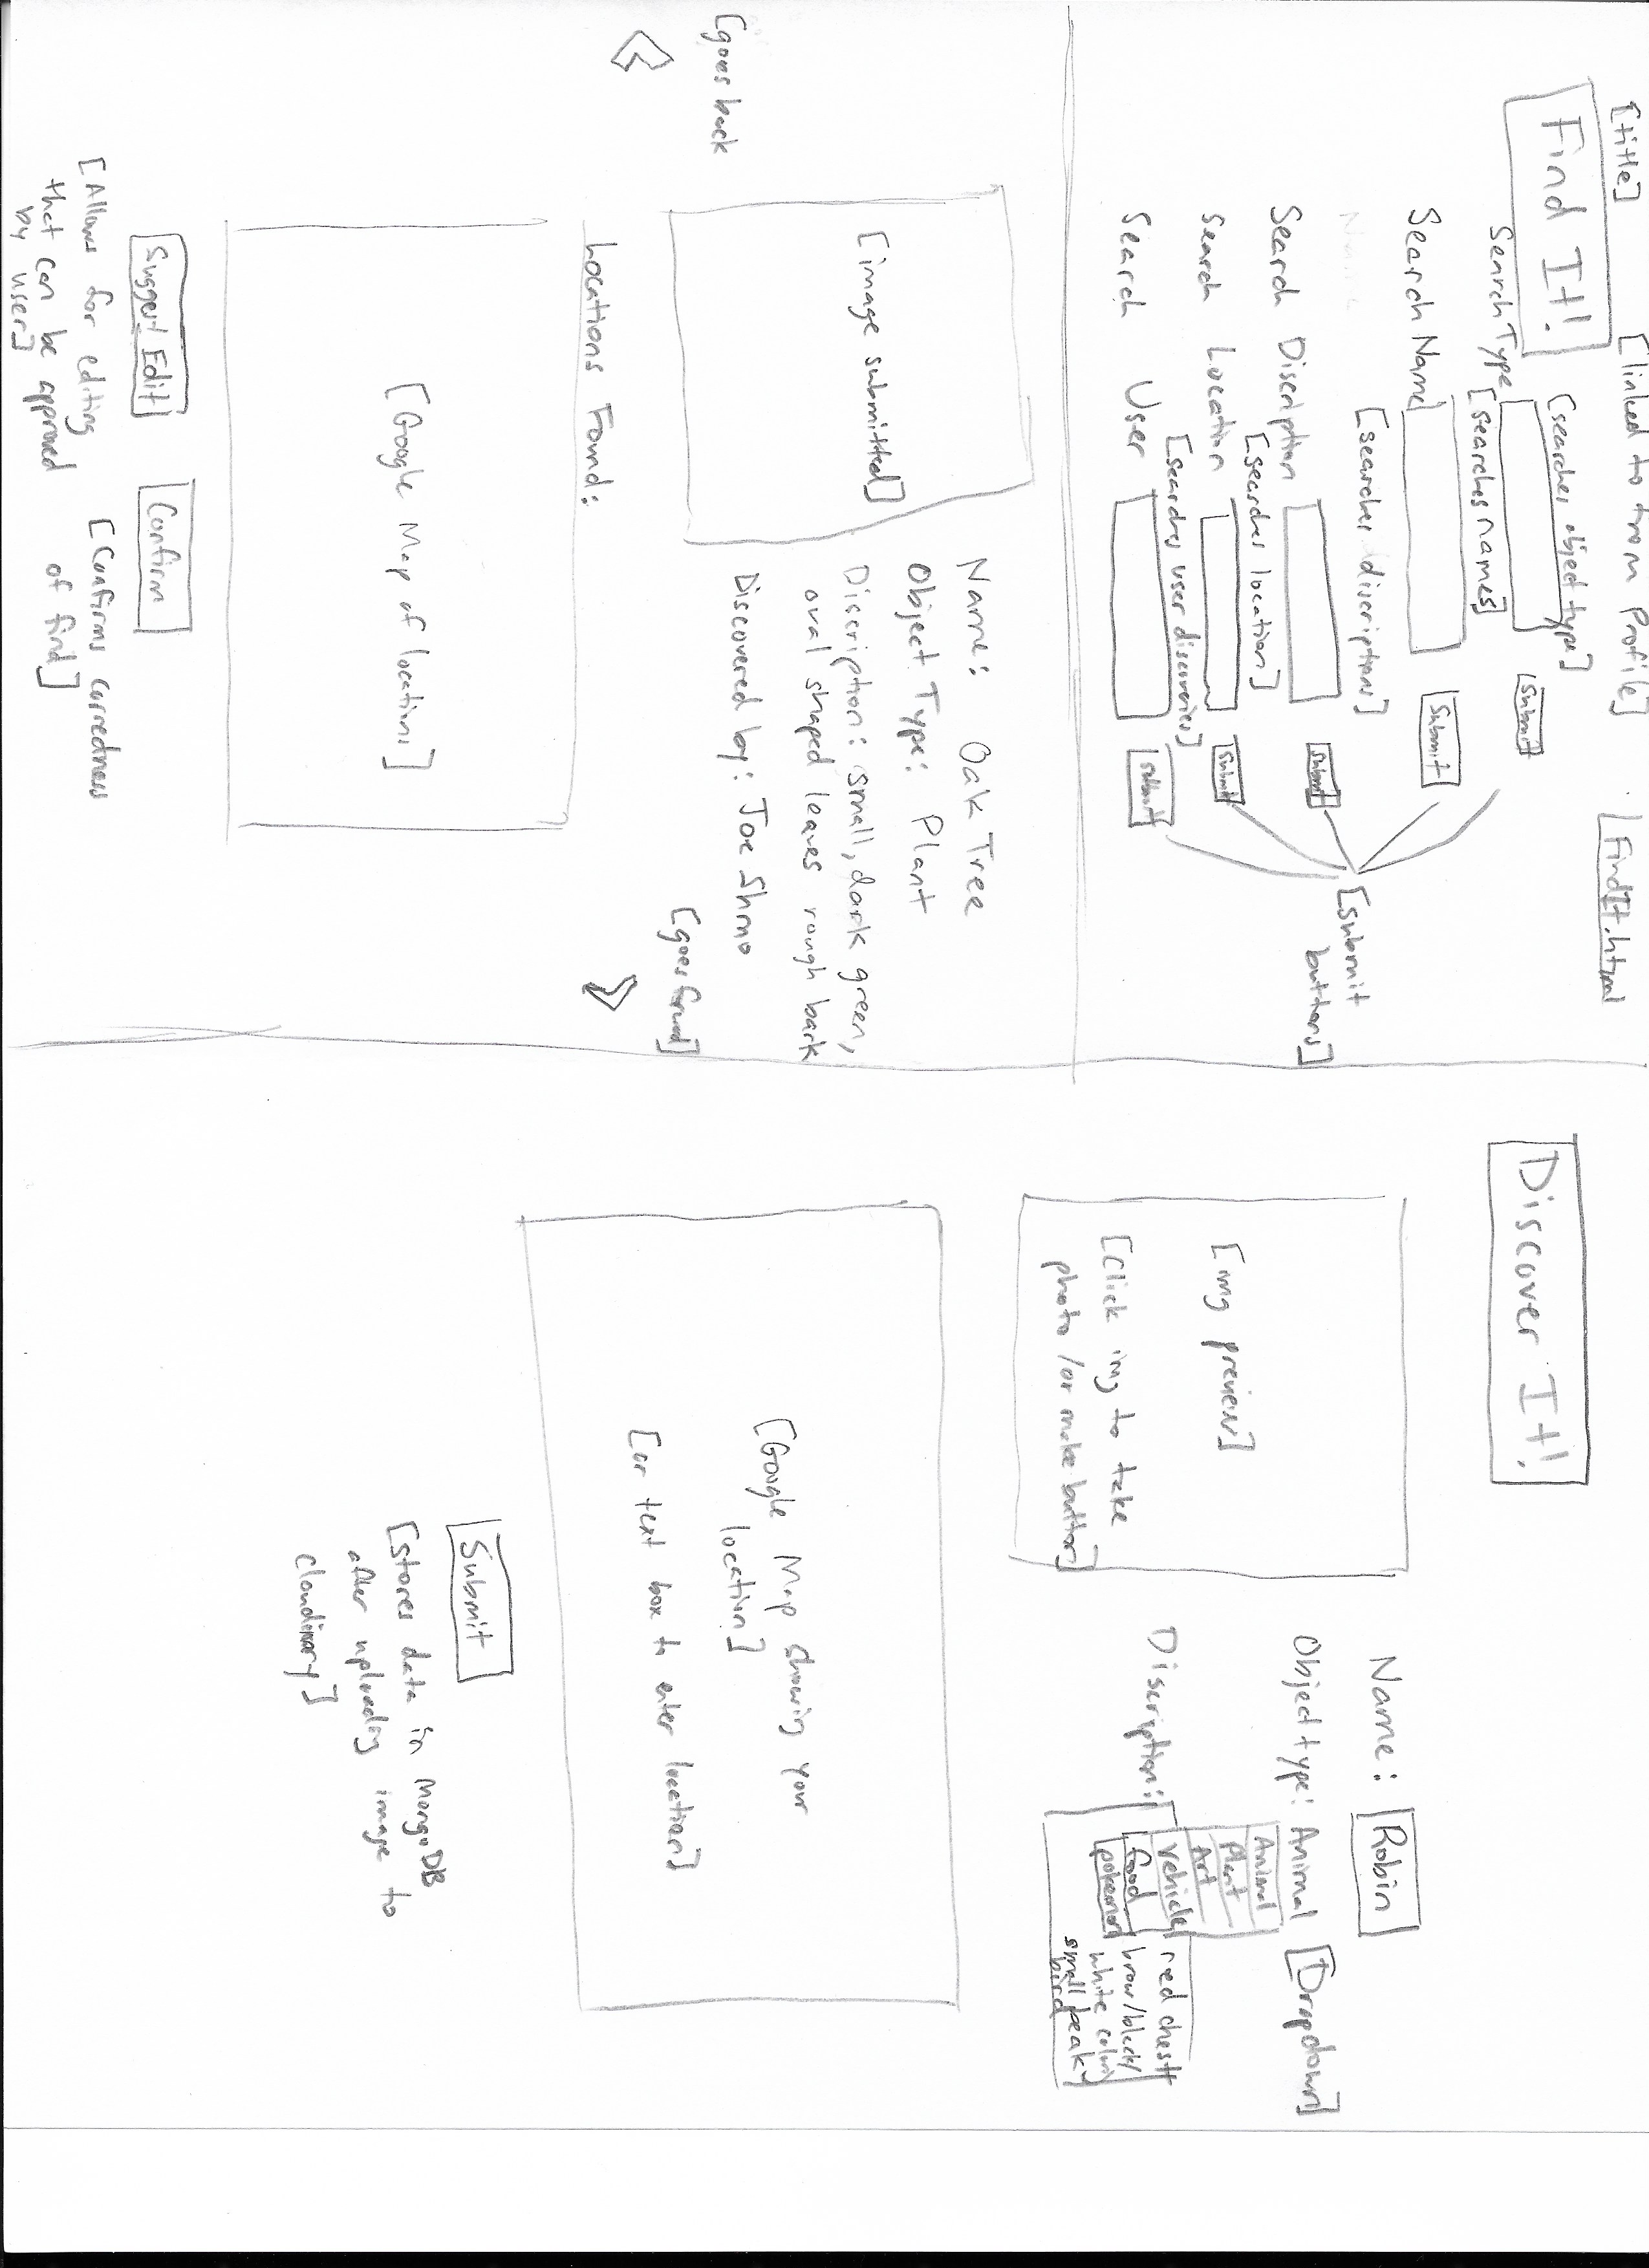 [title]
[linked to from Profile]
FindIt.html
Find It!
[searches object type]
Search Type
Submit
[searches names]
Search Name
Submit
[searches discription]
Search Discription
Submit
[submit
buttons]
[searches location]
Search Location
Submit
[searches user discoveries]
Search User
Submit
[image submitted]
Name: Oak Tree
Object Type: Plant
Discription: small, dark green,
oval shaped leaves rough bark
Discovered by: Joe Shmo
[goes back
[goes forward]
Locations Found:
[Google Map of locations]
Suggest Edit
Confirm
[Allows for editing
that can be approved
by user]
[Confirms correctness
of find]
Discover It!
[img preview]
[Click img to take
photo /or make button]
Name: Robin
Object type: Animal [Dropdown]
Animal
Plant
Art
Vehicle
food
pokemon
Discription:
red chest
brow/black/
white color
small beak
bird
[Google Map showing your
location]
[or text box to enter location]
Submit
[stores data in MongoDB
after uploading image to
cloudinary]